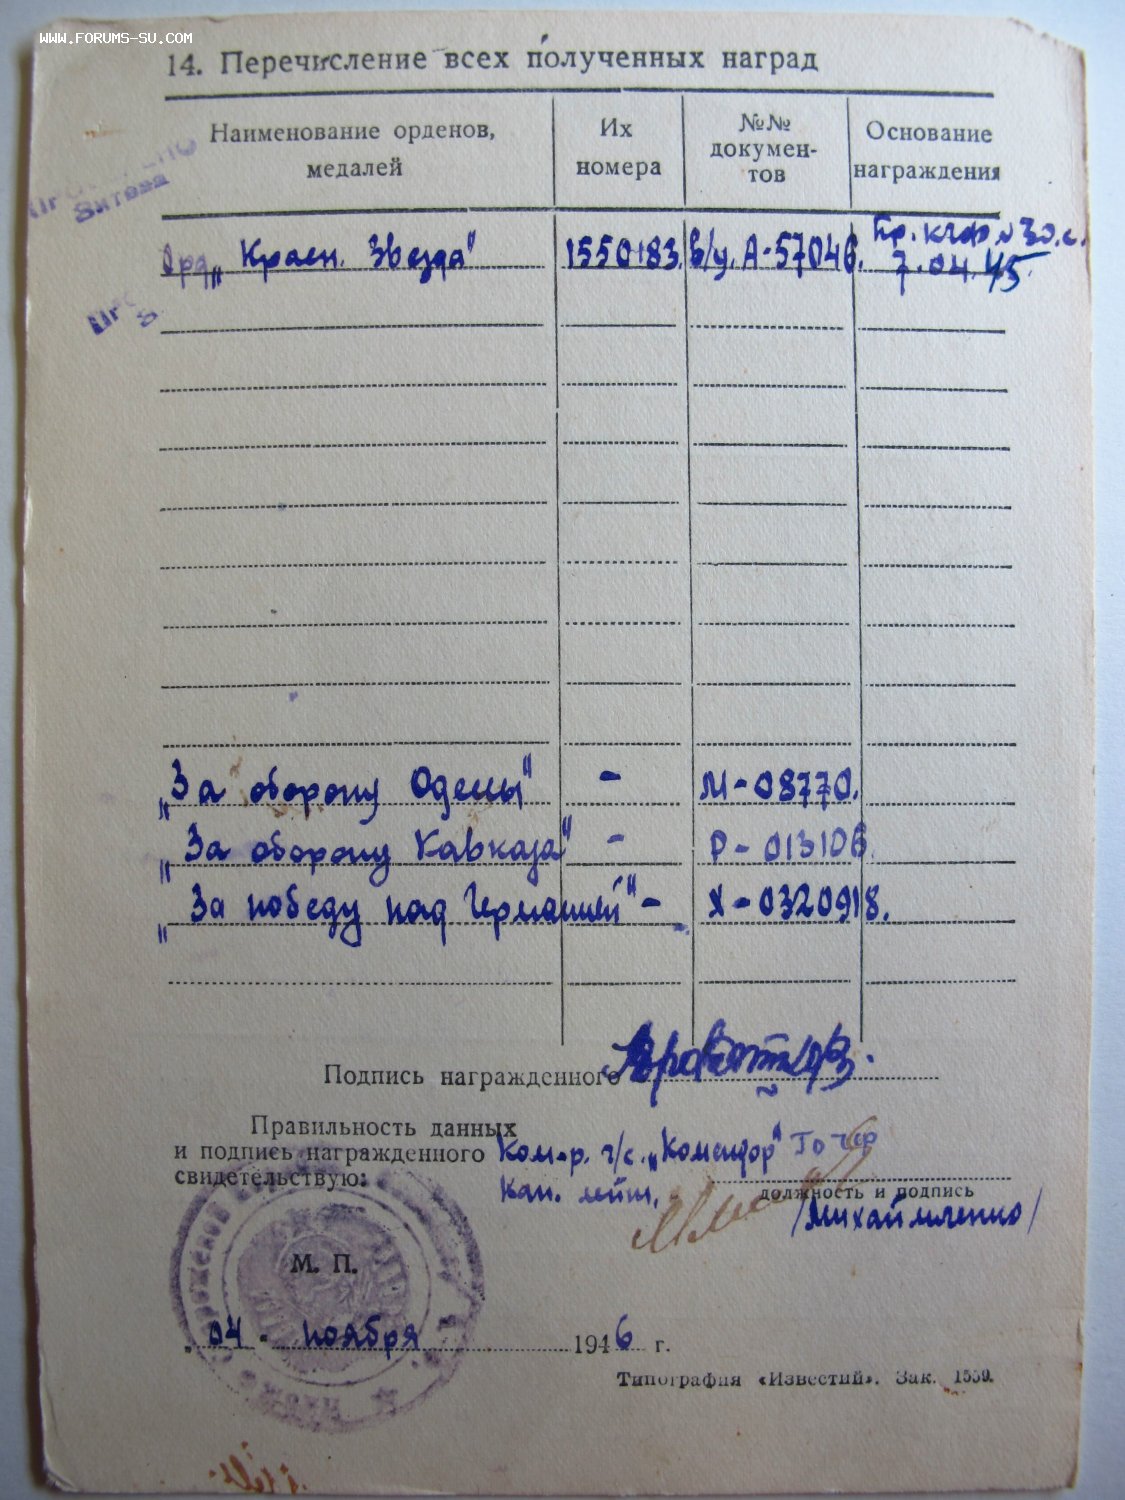 WWW.FORUMS-SU.COM
14. Перечисление всех полученных наград
Наименование орденов, медалей
Их номера
№№ докумен-тов
Основание награждения
Орд „Красн. Звезда" 1550183. В/у. А-57046. Пр. КЧФ № 30.с. 7.04.45
„За оборону Одессы" - М-08770.
„За оборону Кавказа" - Р-013106.
„За победу над Германией" - Х-0320918.
Подпись награжденного
Правильность данных
и подпись награжденного
свидетельствую:
Ком-р. г/с. „Комендор"
Кап. лейт.
должность и подпись
/Михайленко/
М. П.
04 - ноября 1946 г.
Типография «Известий». Зак. 1559.